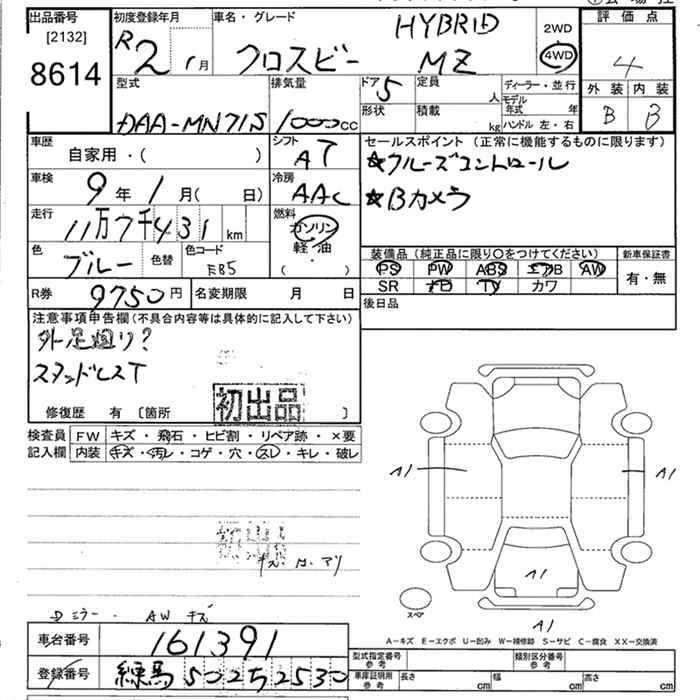 出品番号
[2132]
8614
初度登録年月
R2 1月
車名・グレード
HYBRID
クロスビー MZ
2WD
4WD
評価点
4
外装 内装
B B
型式
DAA-MN71S
排気量
1000cc
ドア 5
形状
定員 人
積載 kg
ディーラー・並行
モデル年式 年
ハンドル 左・右
車歴
自家用・( )
シフト
AT
車検
9年1月( 日)
冷房
AAC
走行
11万7千431km
燃料
ガソリン
軽油
・
( )
色
ブルー
色替
色コード
R券
9750円
名変期限 月 日
セールスポイント(正常に機能するものに限ります)
★クルーズコントロール
★Bカメラ
装備品(純正品に限り○をつけてください)
PS PW ABS エアB AW
SR ナビ TV カワ
新車保証書
有・無
後日品
注意事項申告欄(不具合内容等は具体的に記入して下さい)
スタッドレスT
初出品
修復歴 有 [箇所 ]
検査員記入欄
FW キズ・飛石・ヒビ割・リペア跡・×要
内装 キズ・汚レ・コゲ・穴・スレ・キレ・破レ
Dミラー・AWキズ
A1
A1
A1
A1
スペア
A-キズ E-エクボ U-凹み W-補修跡 S-サビ C-腐食 XX-交換済
車台番号
161391
登録番号
練馬502す2530
型式指定番号
参考
類別区分番号
参考
車庫証明用
参考
長さ cm
幅 cm
高さ cm